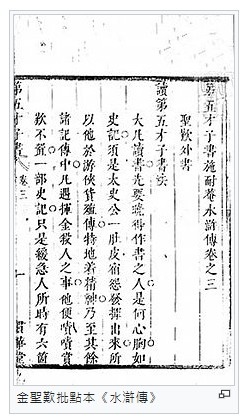 第五才子書施耐菴水滸傳卷之三
聖歎外書
讀第五才子書法
大凡讀書先要曉得作書之人是何心胸如
史記須是太史公一肚皮宿怨發揮出來所
以他於游俠貨殖傳特地着精神乃至其餘
諸記傳中凡遇揮金殺人之事他便嘖嘖賞
歎不置一部史記只是緩急人所時有六箇
第五才子書 卷三 一 貫華堂
金聖歎批點本《水滸傳》